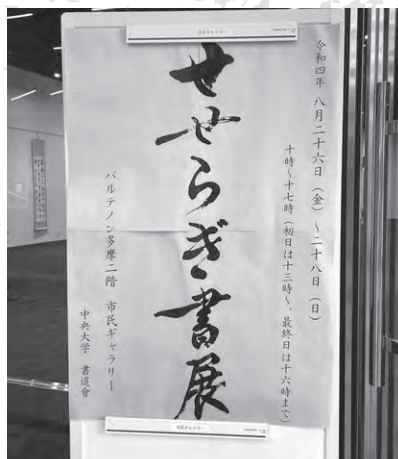 令和四年 八月二十六日(金)~二十八日(日)
十時~十七時(初日は十三時~、最終日は十六時まで)
せせらぎ書展
パルテノン多摩二階 市民ギャラリー
中央大学 書道會